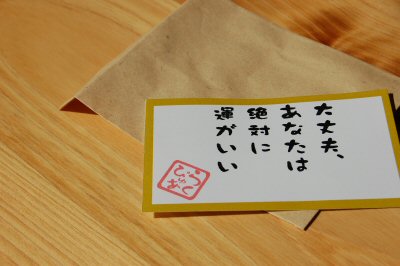 大丈夫、
あなたは
絶対に
運がいい